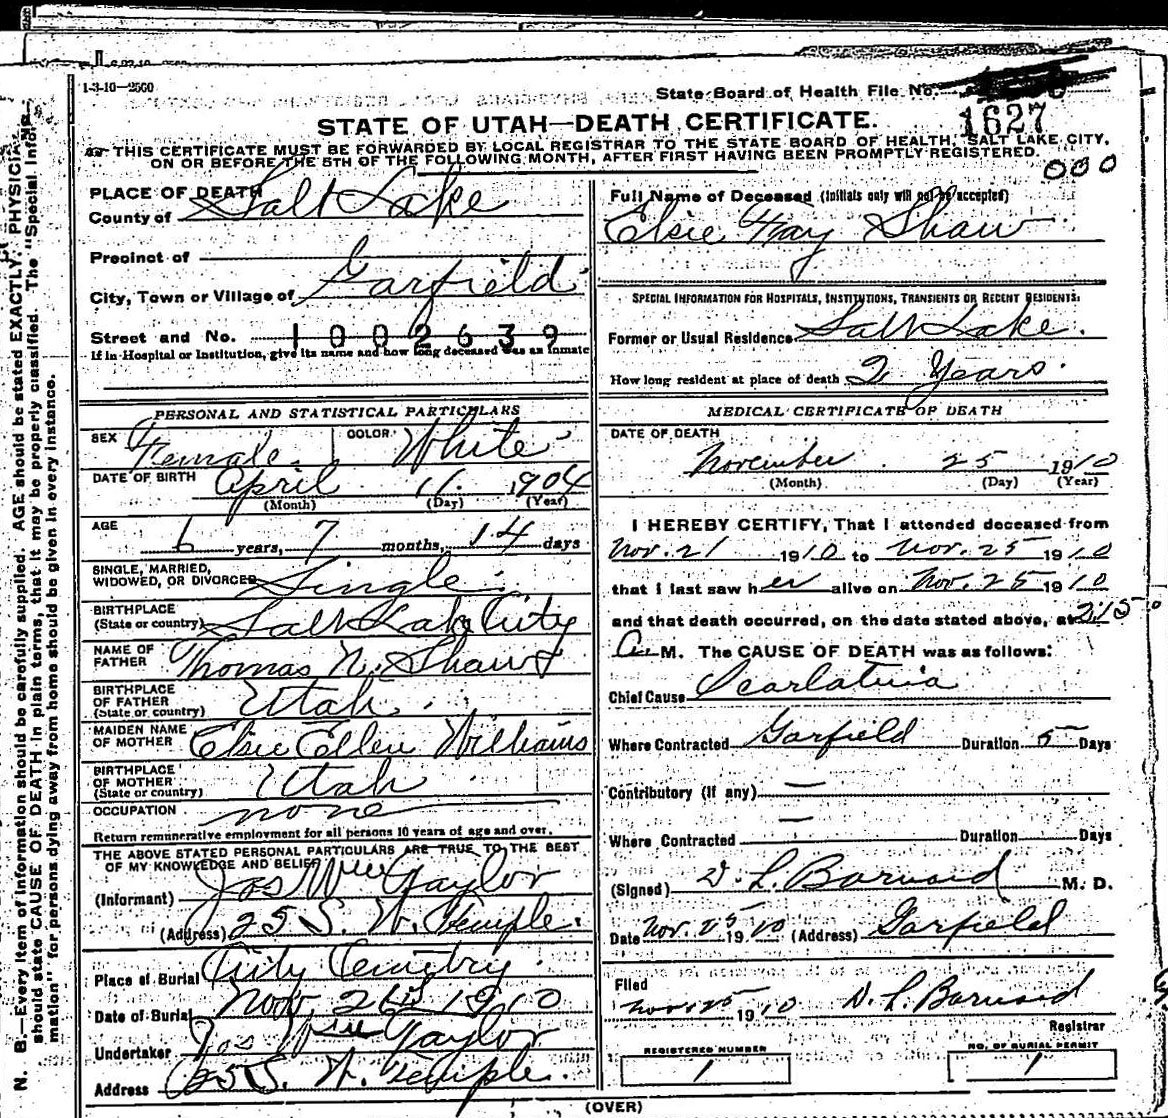 1-3-10—2500
State Board of Health File No.
1627
STATE OF UTAH—DEATH CERTIFICATE.
THIS CERTIFICATE MUST BE FORWARDED BY LOCAL REGISTRAR TO THE STATE BOARD OF HEALTH, SALT LAKE CITY,
ON OR BEFORE THE 5TH OF THE FOLLOWING MONTH, AFTER FIRST HAVING BEEN PROMPTLY REGISTERED.
000
PLACE OF DEATH
County of Salt Lake
Precinct of
City, Town or Village of Garfield
Street and No. 1002639
If in Hospital or Institution, give its name and how long deceased was an inmate
PERSONAL AND STATISTICAL PARTICULARS
SEX Female COLOR White
DATE OF BIRTH April 11 1904
(Month) (Day) (Year)
AGE 6 years, 7 months, 14 days
SINGLE, MARRIED,
WIDOWED, OR DIVORCED Single
BIRTHPLACE
(State or country) Salt Lake City
NAME OF
FATHER Thomas N. Shaw
BIRTHPLACE
OF FATHER
(State or country) Utah
MAIDEN NAME
OF MOTHER Elsie Ellen Williams
BIRTHPLACE
OF MOTHER
(State or country) Utah
OCCUPATION none
Return remunerative employment for all persons 10 years of age and over.
THE ABOVE STATED PERSONAL PARTICULARS ARE TRUE TO THE BEST
OF MY KNOWLEDGE AND BELIEF
(Informant) Jos Wm Taylor
(Address) 25 S. W. Temple.
Place of Burial City Cemetry.
Date of Burial Nov. 26th 1910
Undertaker Jos Wm Taylor
Address 25 S. W. Temple.
Full Name of Deceased (Initials only will not be accepted)
Elsie Fay Shaw
SPECIAL INFORMATION FOR HOSPITALS, INSTITUTIONS, TRANSIENTS OR RECENT RESIDENTS.
Former or Usual Residence Salt Lake.
How long resident at place of death 2 Years.
MEDICAL CERTIFICATE OF DEATH
DATE OF DEATH
November 25 1910
(Month) (Day) (Year)
I HEREBY CERTIFY, That I attended deceased from
Nov. 21 1910 to Nov. 25 1910
that I last saw her alive on Nov. 25 1910
and that death occurred, on the date stated above, at 3:15
A. M. The CAUSE OF DEATH was as follows:
Chief Cause Scarlatina
Where Contracted Garfield Duration 5 Days
Contributory (If any) —
Where Contracted — Duration Days
(Signed) D. L. Barnard M. D.
Date Nov. 25 1910 (Address) Garfield
Filed
Nov. 25 1910 D. L. Barnard
Registrar
REGISTERED NUMBER
1
NO. OF BURIAL PERMIT
1
(OVER)
N. B.—Every item of information should be carefully supplied. AGE should be stated EXACTLY. PHYSICIANS
should state CAUSE OF DEATH in plain terms, that it may be properly classified. The "Special Infor-
mation" for persons dying away from home should be given in every instance.